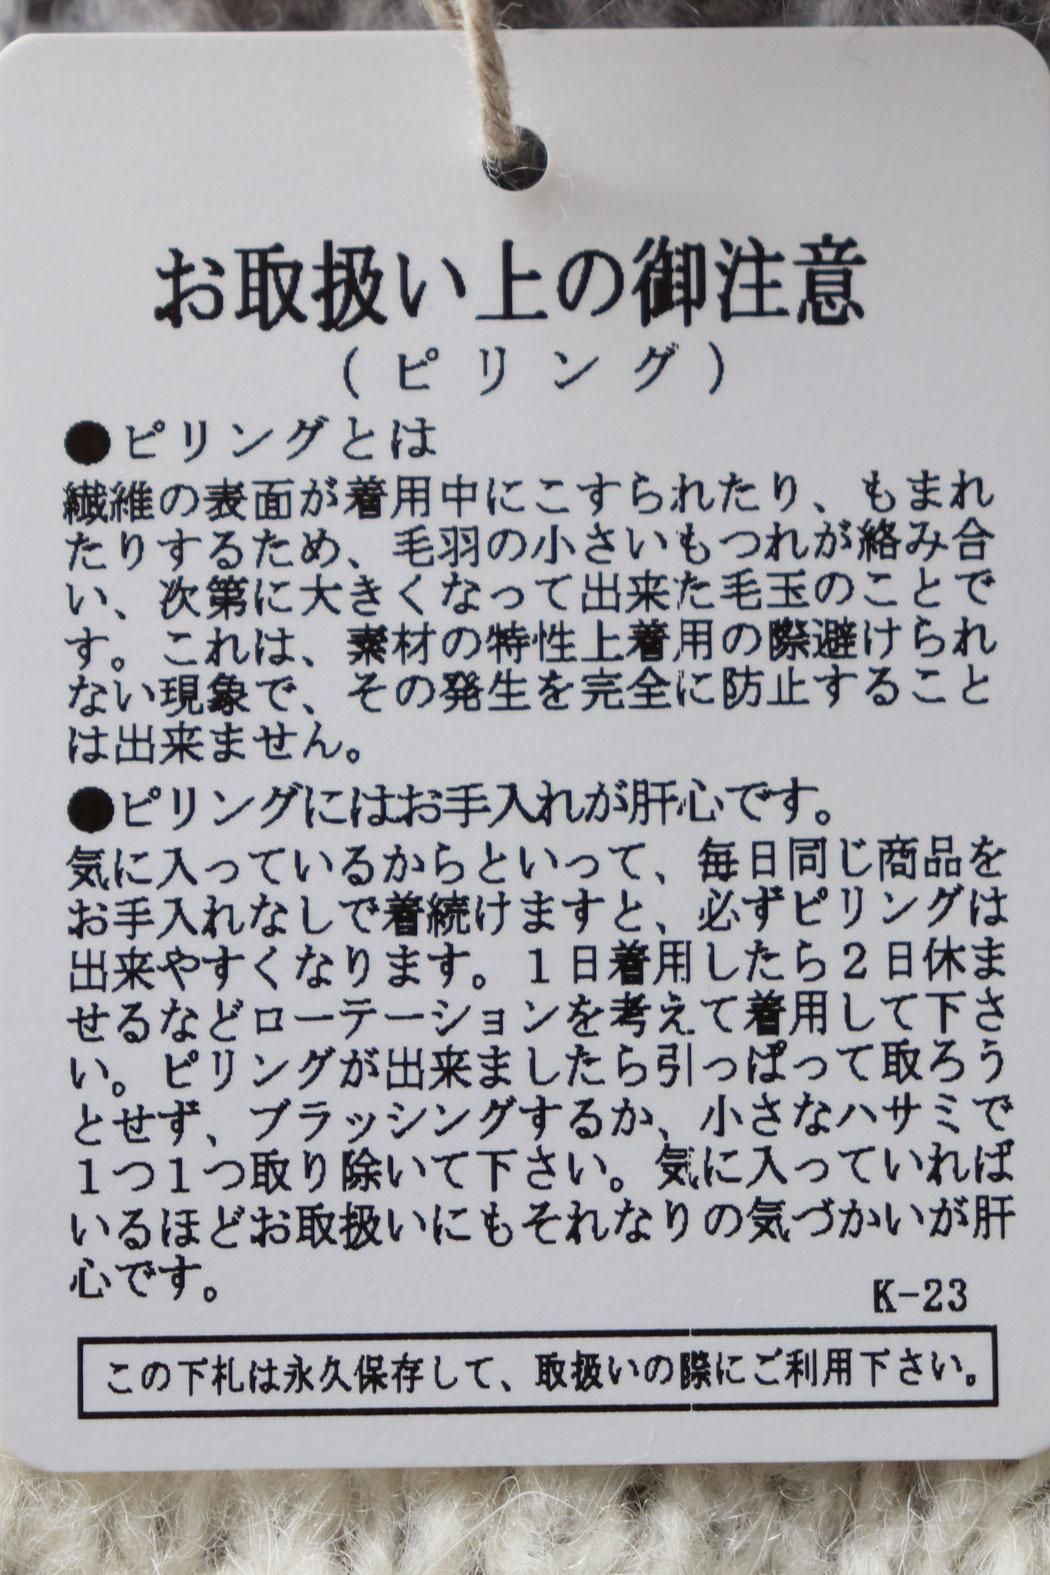 お取扱い上の御注意
(ピリング)
●ピリングとは
繊維の表面が着用中にこすられたり、もまれ
たりするため、毛羽の小さいもつれが絡み合
い、次第に大きくなって出来た毛玉のことで
す。これは、素材の特性上着用の際避けられ
ない現象で、その発生を完全に防止すること
は出来ません。
●ピリングにはお手入れが肝心です。
気に入っているからといって、毎日同じ商品を
お手入れなしで着続けますと、必ずピリングは
出来やすくなります。1日着用したら2日休ま
せるなどローテーションを考えて着用して下さ
い。ピリングが出来ましたら引っぱって取ろう
とせず、ブラッシングするか、小さなハサミで
1つ1つ取り除いて下さい。気に入っていれば
いるほどお取扱いにもそれなりの気づかいが肝
心です。
K-23
この下札は永久保存して、取扱いの際にご利用下さい。